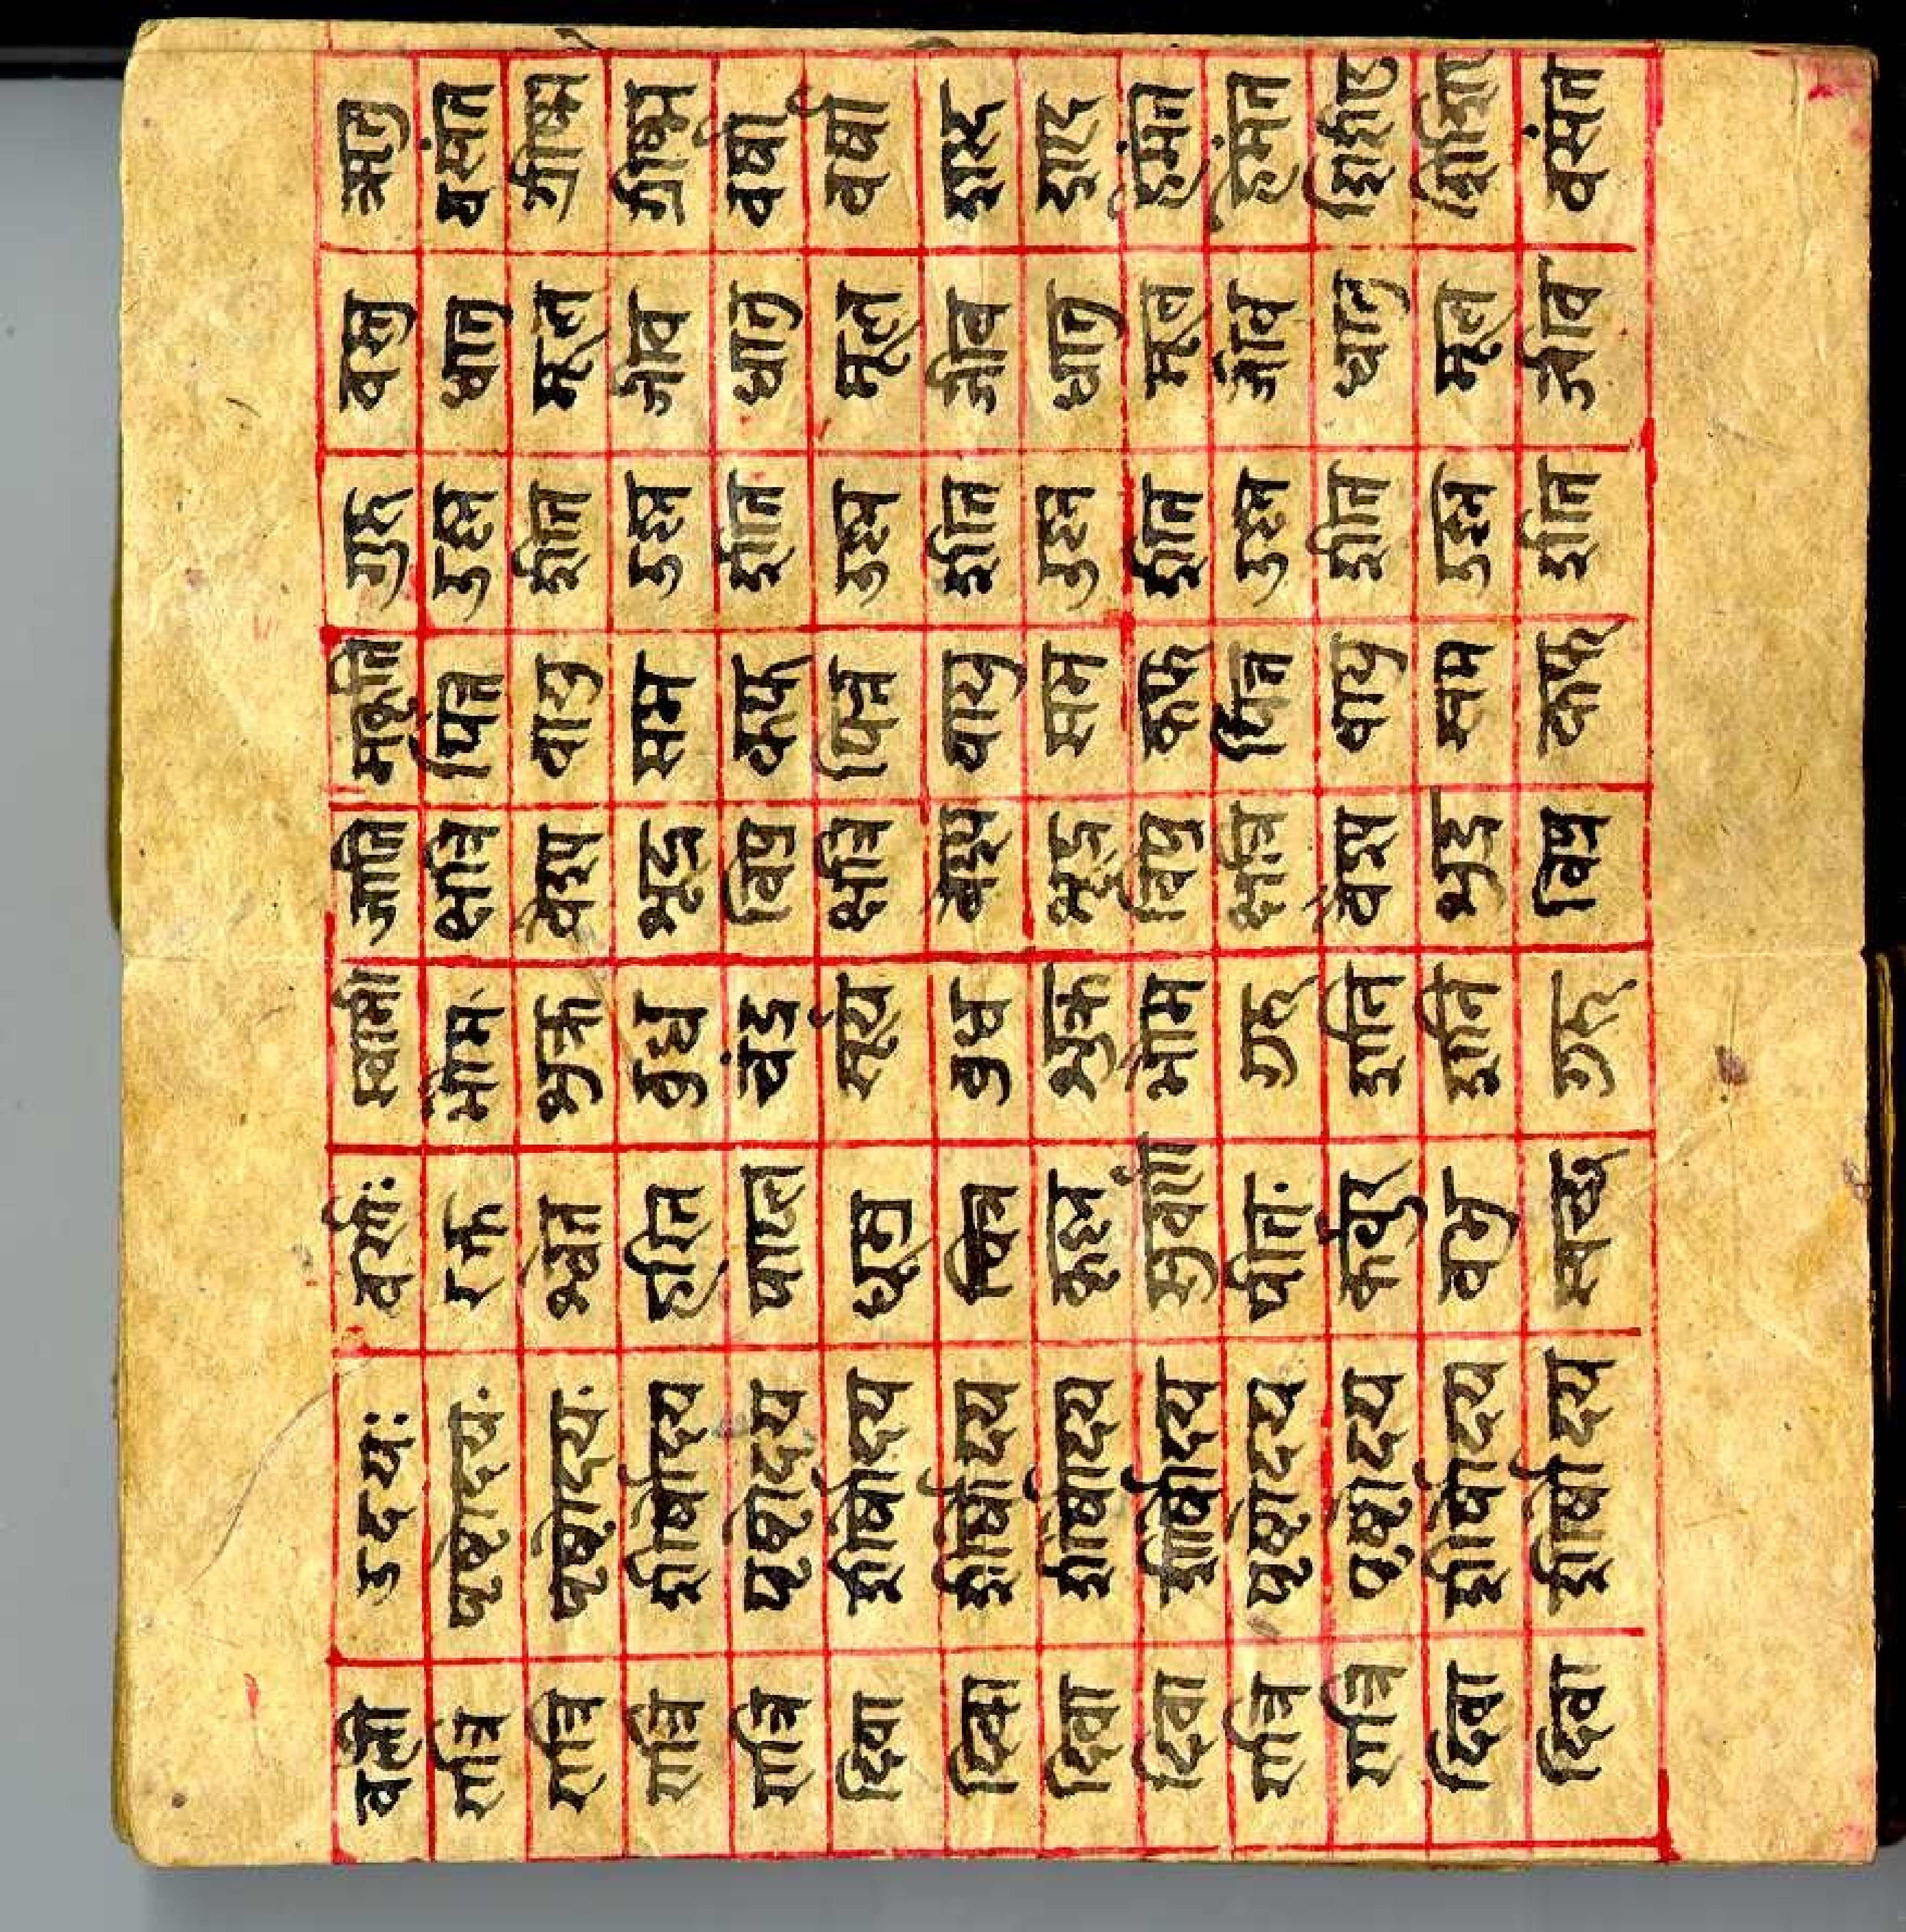 वली उदयः वर्णः स्वामी जाति प्रकृति वस्तु ऋतु
रात्रि पृष्ठोदयः रक्त भौमः क्षत्रि पित्र उस्म धातु वसंत
रात्रि पृष्ठोदयः श्वेत शुक्र वैश्य वायु शीत मूल ग्रीष्म
रात्रि शीर्षोदय हरित बुध शूद्र सम उस्म जीव ग्रीष्म
रात्रि पृष्ठोदय पाटल चंद्र विप्र कफ शीत धातु वर्षा
दिवा शीर्षोदय धूम्र सूर्य क्षत्रि पित्र उस्म मूल वर्षा
दिवा शीर्षोदय चित्र बुध वैश्य वायु शीत जीव शरद
दिवा शीर्षोदय कृष्ण शुक्र शूद्र सम उस्म धातु शरद
दिवा शीर्षोदय सुवर्ण भौम विप्र कफ शीत मूल हेमंत
रात्रि पृष्ठोदय पीतः गुरु क्षत्रि पित्र उस्म जीव हेमंत
रात्रि पृष्ठोदय कर्बुर शनि वैश्य वायु शीत धातु
दिवा शीर्षोदय शनि शूद्र सम उस्म मूल
दिवा शीर्षोदय स्वच्छ गुरु विप्र कफ शीत जीव वसंत